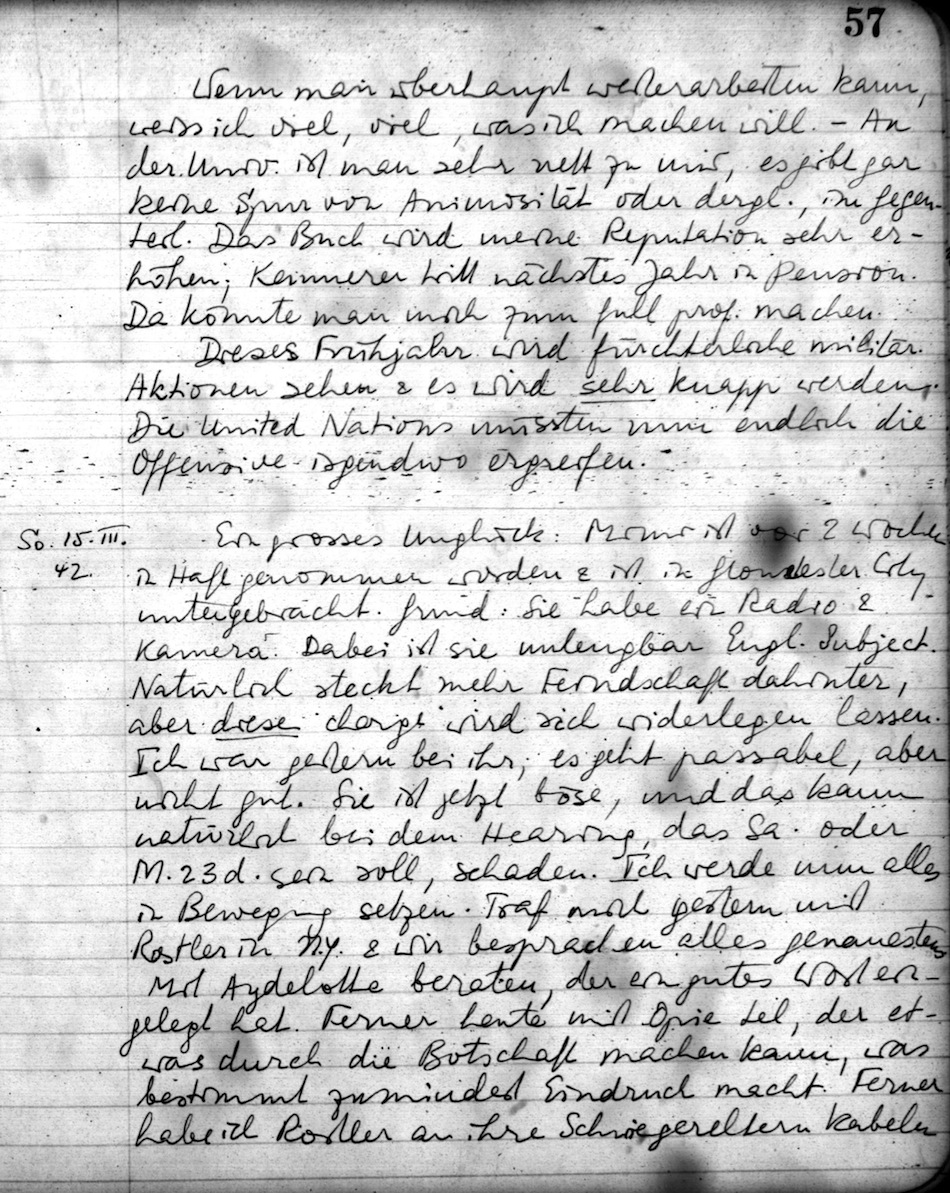 57
Wenn man überhaupt weiterarbeiten kann,
weiss ich viel, viel, was ich machen will. – An
der Univ. ist man sehr nett zu mir, es gibt gar
keine Spur von Animosität oder dergl., im Gegen-
teil. Das Buch wird meine Reputation sehr er-
höhen; Kemmerer will nächstes Jahr in Pension.
Da könnte man mich zum full prof. machen.
Dieses Frühjahr wird fürchterliche militär.
Aktionen sehen & es wird sehr knapp werden.
Die United Nations müssten nun endlich die
Offensive irgendwo ergreifen.
So. 15. III. 42. Ein grosses Unglück: Mimi ist vor 2 Wochen
in Haft genommen worden & ist in Gloucester City
untergebracht. Grund: Sie habe ein Radio &
Kamera. Dabei ist sie unleugbar Engl. Subject.
Natürlich steckt mehr Feindschaft dahinter,
aber diese charge wird sich widerlegen lassen.
Ich war gestern bei ihr; es geht passabel, aber
nicht gut. Sie ist jetzt böse, und das kann
natürlich bei dem Hearing, das Sa. oder
M. 23 d. sein soll, schaden. Ich werde nun alles
in Bewegung setzen. Traf mich gestern mit
in N.Y. & wir besprachen alles genauestens
Mit Aydelotte beraten, der ein gutes Wort ein-
gelegt hat. Ferner heute mit Opie tel, der et-
was durch die Botschaft machen kann, was
bestimmt zumindest Eindruck macht. Ferner
habe ich an ihre Schwiegereltern kabeln